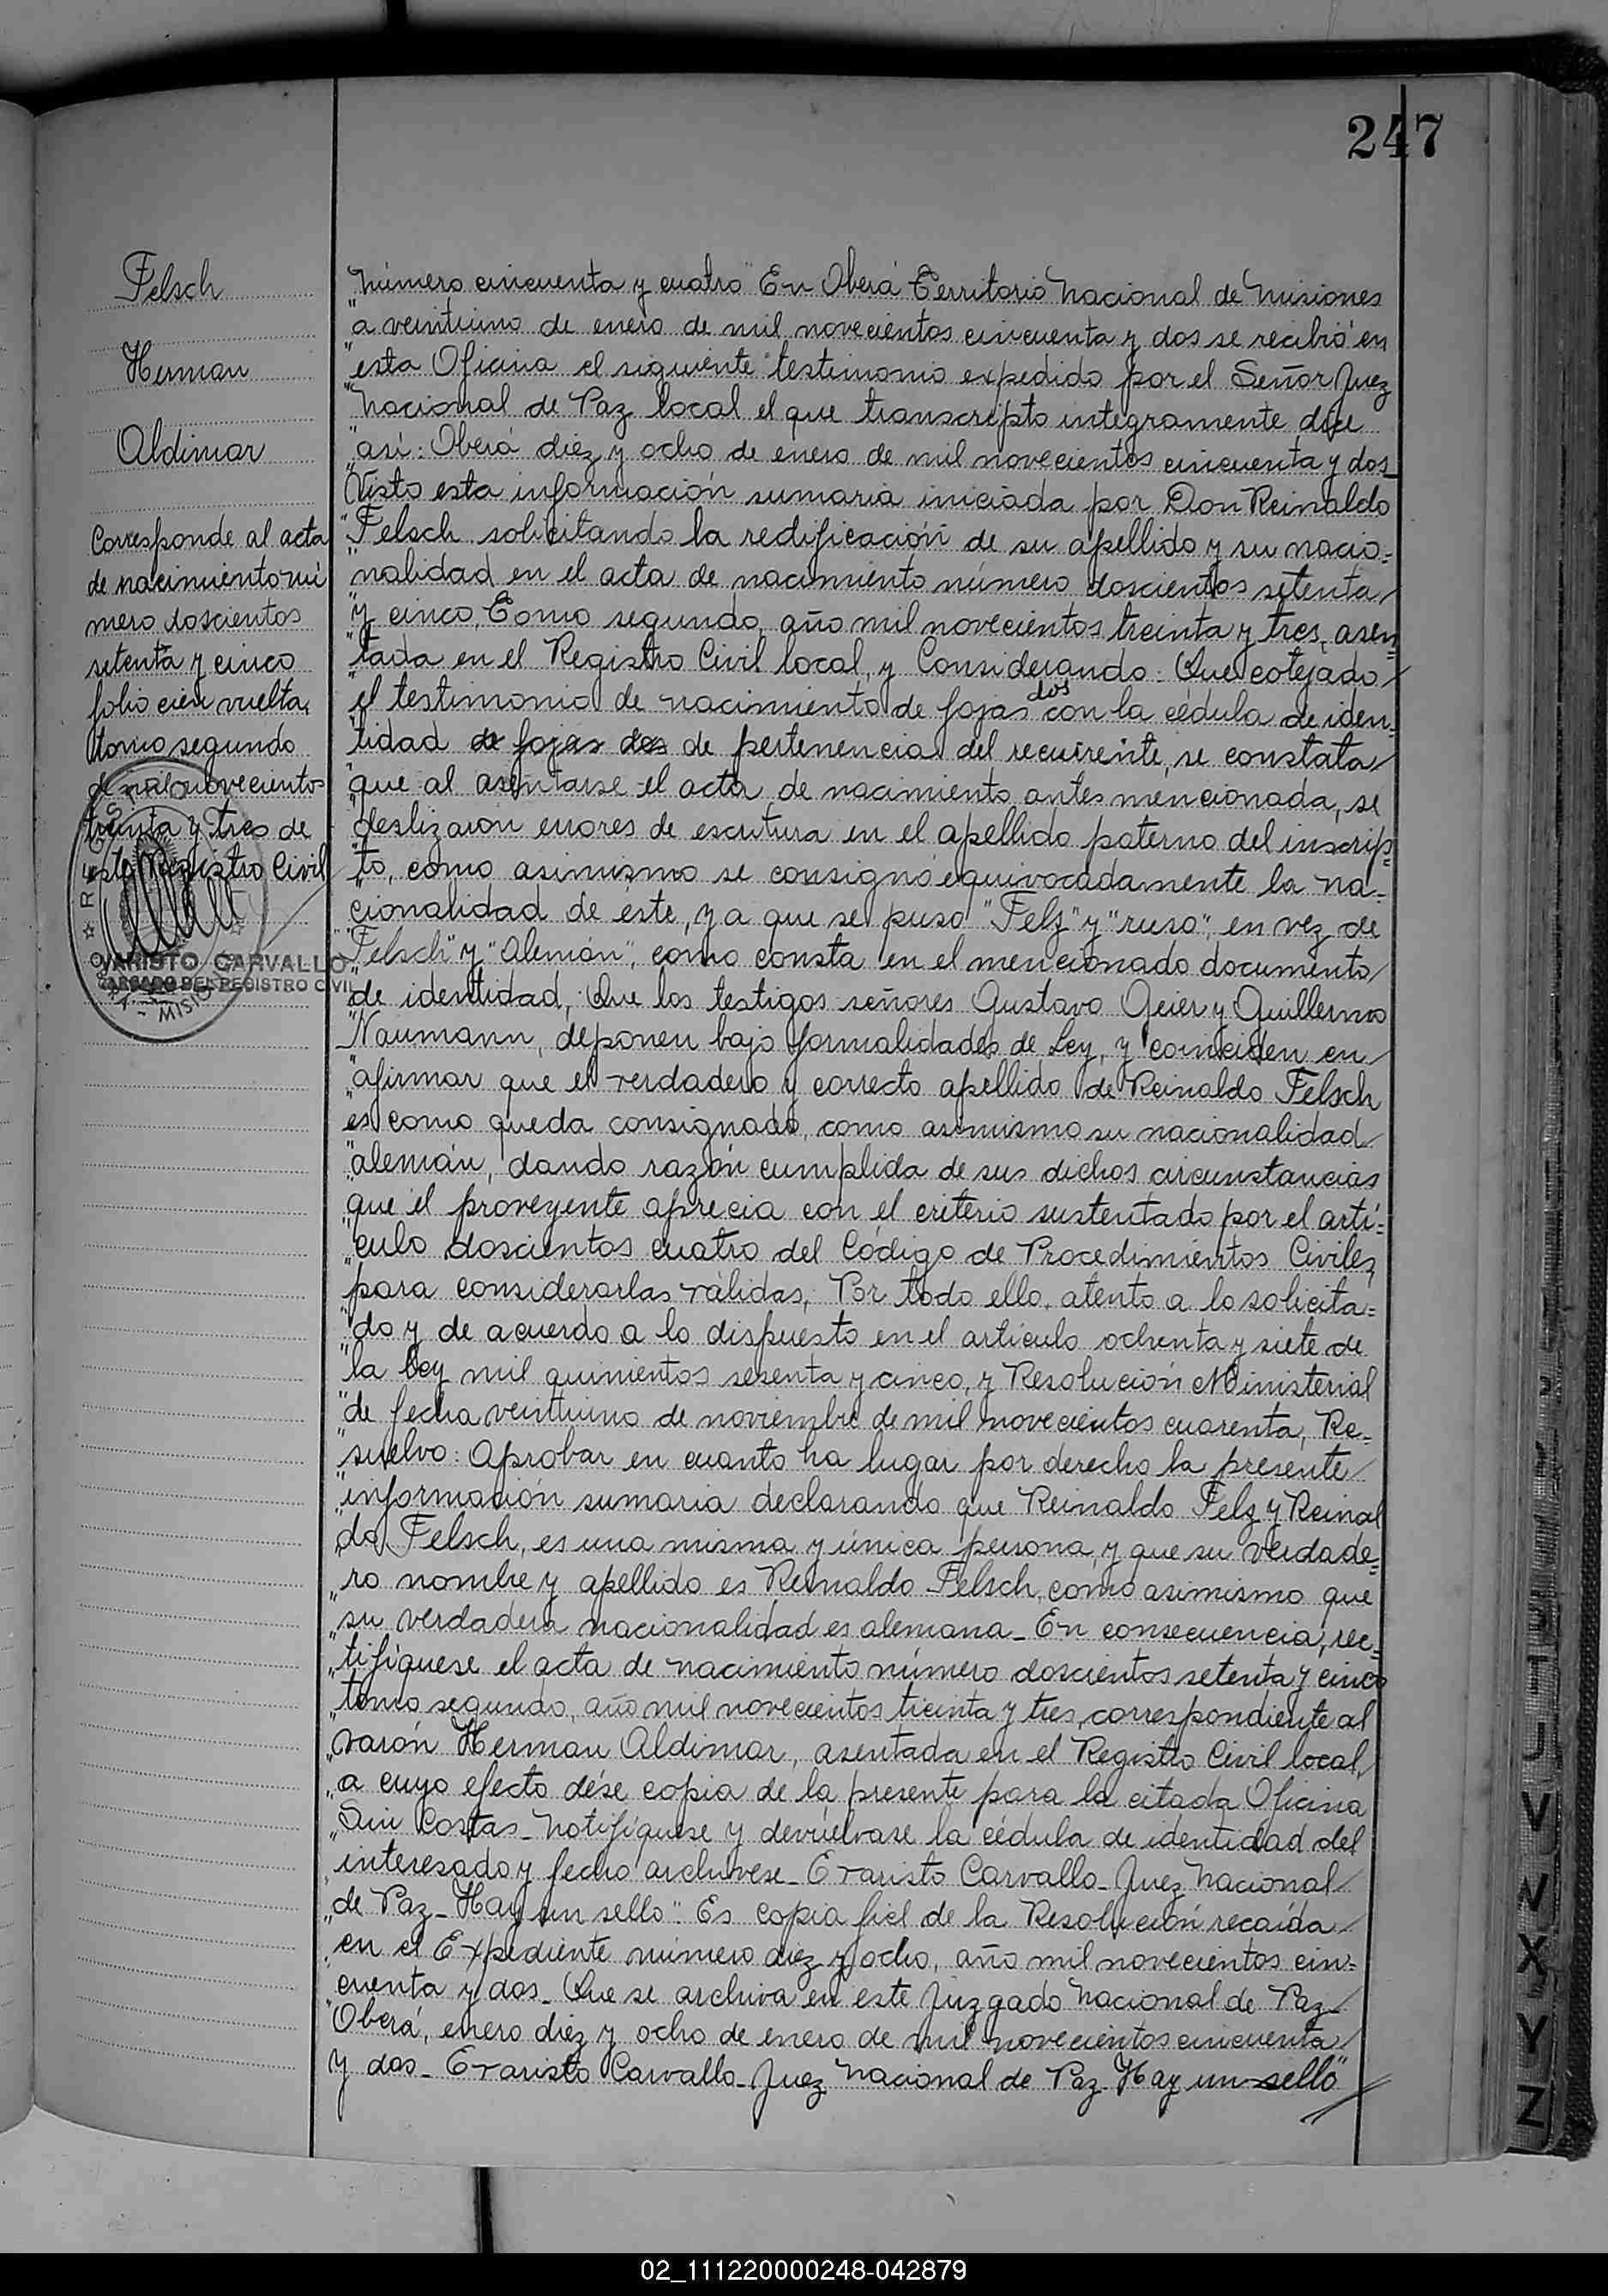 247
Felsch
Herman
Aldimar
Corresponde al acta
de nacimiento nú
mero doscientos
setenta y cinco
folio cien vuelta,
tomo segundo
de mil novecientos
treinta y tres de
este Registro Civil
EVARISTO CARVALLO
ENCARGADO DEL REGISTRO CIVIL
"Número cincuenta y cuatro" En Oberá Territorio Nacional de Misiones
"a veintiuno de enero de mil novecientos cincuenta y dos se recibió en
"esta Oficina el siguiente testimonio expedido por el Señor Juez
"Nacional de Paz local el que transcripto integramente dice
"así: Oberá diez y ocho de enero de mil novecientos cincuenta y dos_
"Visto esta información sumaria iniciada por Don Reinaldo
"Felsch solicitando la rectificación de su apellido y su nacio=
"nalidad en el acta de nacimiento número doscientos setenta/
"y cinco, Tomo segundo, año mil novecientos treinta y tres, asen
"tada en el Registro Civil local, y Considerando: Que cotejado/
"el testimonio de nacimiento de fojas dos con la cédula de iden=
"tidad de fojas dos de pertenencia del recurrente, se constata/
"que al asentarse el acta de nacimiento antes mencionada, se
"deslizaron errores de escritura en el apellido paterno del inscrip=
"to, como asimismo se consignó equivocadamente la na=
"cionalidad de éste, ya que se puso "Felz" y "ruso", en vez de
"Felsch" y "Alemán", como consta en el mencionado documento/
"de identidad, Que los testigos señores Gustavo Geier y Guillermo
"Naumann, deponen bajo formalidades de Ley, y coinciden en/
"afirmar que el verdadero y correcto apellido de Reinaldo Felsch
es como queda consignado, como asimismo su nacionalidad/
"alemán, dando razón cumplida de sus dichos circunstancias
"que el proveyente aprecia con el criterio sustentado por el artí=
"culo doscientos cuatro del Código de Procedimientos Civiles,
"para considerarlas válidas, Por todo ello, atento a lo solicita=
"do y de acuerdo a lo dispuesto en el articulo ochenta y siete de
"la Ley mil quinientos sesenta y cinco, y Resolución Ministerial
"de fecha veintiuno de noviembre de mil novecientos cuarenta, Re=
"suelvo: Aprobar en cuanto ha lugar por derecho la presente/
"información sumaria declarando que Reinaldo Felz y Reinal
"do Felsch, es una misma y única persona y que su verdade=
"ro nombre y apellido es Reinaldo Felsch, como asimismo que
"su verdadera nacionalidad es alemana_ En consecuencia, rec=
"tifíquese el acta de nacimiento número doscientos setenta y cinco
"tomo segundo, año mil novecientos treinta y tres, correspondiente al
"varón Herman Aldimar, asentada en el Registro Civil local,
"a cuyo efecto dése copia de la presente para la citada Oficina
"Sin Costas_ Notifíquese y devuélvase la cédula de identidad del
"interesado y fecho archívese_ Evaristo Carvallo_ Juez Nacional/
"de Paz_ Hay un sello". Es copia fiel de la Resolución recaída/
"en el Expediente número diez y ocho, año mil novecientos cin=
"cuenta y dos_ Que se archiva en este Juzgado Nacional de Paz_
"Oberá, enero diez y ocho de enero de mil novecientos cincuenta/
y dos_ Evaristo Carvallo_ Juez Nacional de Paz_ Hay un sello"
J
V
W
X
Y
Z
02_111220000248-042879